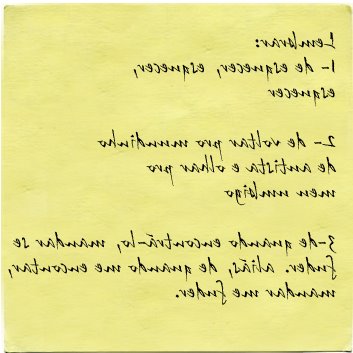 Lembrar:
1- de esquecer, esquecer,
esquecer
2- de voltar pro mundinho
de autista e olhar pro
meu umbigo
3- de quando encontrá-lo, mandar se
fuder. aliás, de quando me encontar,
mandar me fuder.